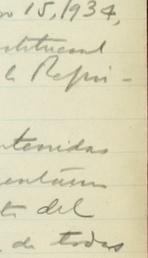 15, 1934,
stitucional
la Repú-
ntenidas
mentarias
del
de todas